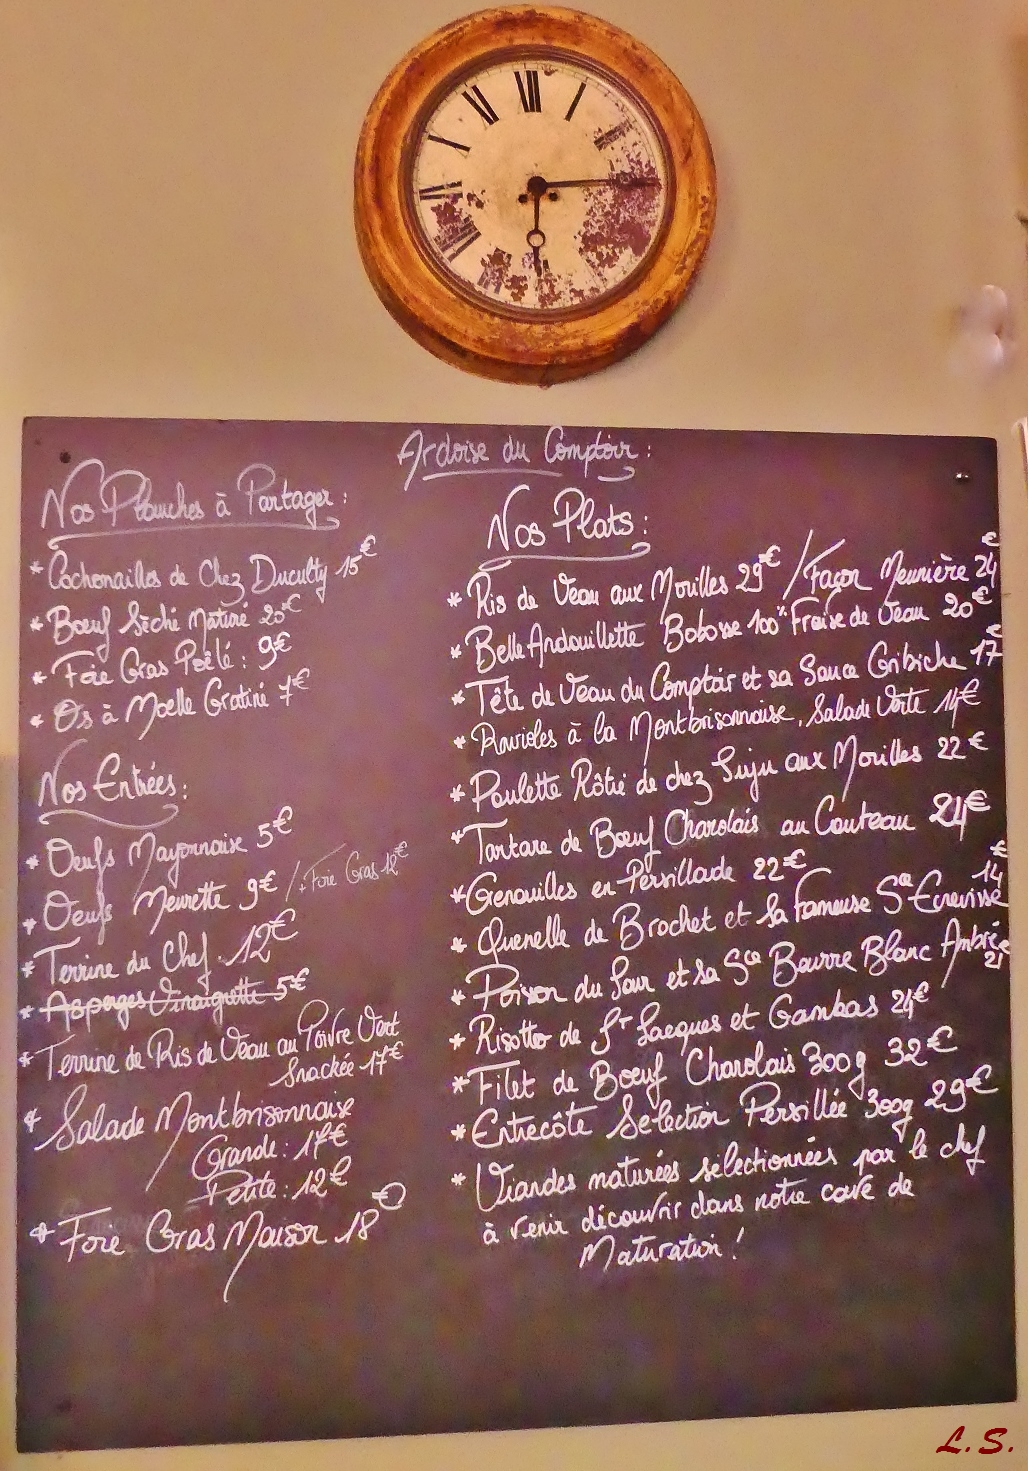 Ardoise du Comptoir :
Nos Planches à Partager :
* Cochonailles de Chez Duculty 15€
* Bœuf Sèché Maturé 20€
* Foie Gras Poêlé : 9€
* Os à Moelle Gratiné 7€
Nos Entrées :
* Oeufs Mayonnaise 5€
* Oeufs Meurette 9€ /+Foie Gras 12€
* Terrine du Chef 12€
* Asperges Vinaigrette 5€
* Terrine de Ris de Veau au Poivre Vert
Snackée 17€
* Salade Montbrisonnaise
Grande : 17€
Petite : 12€
* Foie Gras Maison 18€
Nos Plats :
* Ris de Veau aux Morilles 29€ / Façon Meunière 24€
* Belle Andouillette Bobosse 100% Fraise de Veau 20€
* Tête de Veau du Comptoir et sa Sauce Gribiche 17€
* Ravioles à la Montbrisonnaise, Salade Verte 14€
* Poulette Rôtie de chez Suju aux Morilles 22€
* Tartare de Bœuf Charolais au Couteau 24€
* Grenouilles en Persillade 22€
* Quenelle de Brochet et Sa Fameuse Sce Ecrevisse 14€
* Poisson du Jour et sa Sce Beurre Blanc Ambrée 21
* Risotto de St Jacques et Gambas 24€
* Filet de Bœuf Charolais 300g 32€
* Entrecôte Sélection Persillée 300g 29€
* Viandes maturées selectionnées par le chef
à venir découvrir dans notre cave de
Maturation !
L.S.